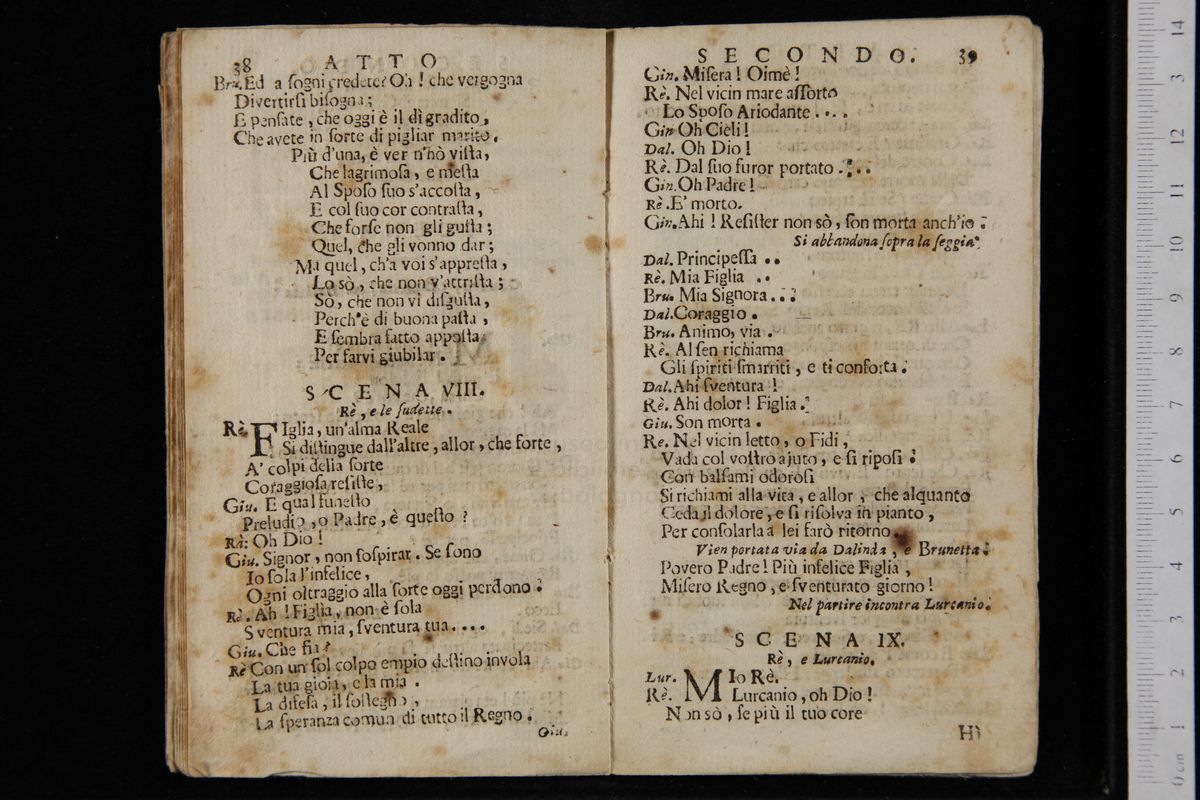 38 ATTO
Bru. Ed a ſogni credete? Oh! che vergogna
Divertirſi biſogna;
E penſate, che oggi è il dì gradito,
Che avete in ſorte di pigliar marito.
Più d'una, è ver n'hò viſta,
Che lagrimoſa, e meſta
Al Spoſo ſuo s'accoſta,
E col ſuo cor contraſta,
Che forſe non gli guſta;
Quel, che gli vonno dar;
Ma quel, ch'a voi s'appreſta,
Lo sò, che non v'attriſta;
Sò, che non vi diſguſta,
Perch'è di buona paſta,
E ſembra fatto appoſta
Per farvi giubilar.
SCENA VIII.
Rè, e le ſudette.
Rè. FIglia, un'alma Reale
Si diſtingue dall'altre, allor, che forte,
A' colpi della ſorte
Coraggioſa reſiſte,
Giu. E qual funeſto
Preludio, o Padre, è queſto?
Rè: Oh Dio!
Giu. Signor, non ſoſpirar. Se ſono
Io ſola l'infelice,
Ogni oltraggio alla ſorte oggi perdono.
Rè. Ah! Figlia, non è ſola
Sventura mia, ſventura tua....
Giu. Che fia?
Rè Con un ſol colpo empio deſtino invola
La tua gioja, e la mia.
La difeſa, il ſoſtegno,
La ſperanza comun di tutto il Regno.
Giu.
SECONDO. 39
Gin. Miſera! Oimè!
Rè. Nel vicin mare aſſorto
Lo Spoſo Ariodante....
Gin Oh Cieli!
Dal. Oh Dio!
Rè. Dal ſuo furor portato....
Gin. Oh Padre!
Rè. E' morto.
Gin. Ahi! Reſiſter non sò, ſon morta anch'io:
Si abbandona ſopra la ſeggia.
Dal. Principeſſa..
Rè. Mia Figlia..
Bru. Mia Signora...
Dal. Coraggio.
Bru. Animo, via.
Rè. Al ſen richiama
Gli ſpiriti ſmarriti, e ti conforta.
Dal. Ahi ſventura!
Rè. Ahi dolor! Figlia.
Giu. Son morta.
Re. Nel vicin letto, o Fidi,
Vada col voſtro ajuto, e ſi ripoſi:
Con balſami odoroſi
Si richiami alla vita, e allor, che alquanto
Ceda il dolore, e ſi riſolva in pianto,
Per conſolarla a lei farò ritorno.
Vien portata via da Dalinda, e Brunetta.
Povero Padre! Più infelice Figlia,
Miſero Regno, e ſventurato giorno!
Nel partire incontra Lurcanio.
SCENA IX.
Rè, e Lurcanio.
Lur. MIo Rè.
Rè. Lurcanio, oh Dio!
Non sò, ſe più il tuo core
Hì